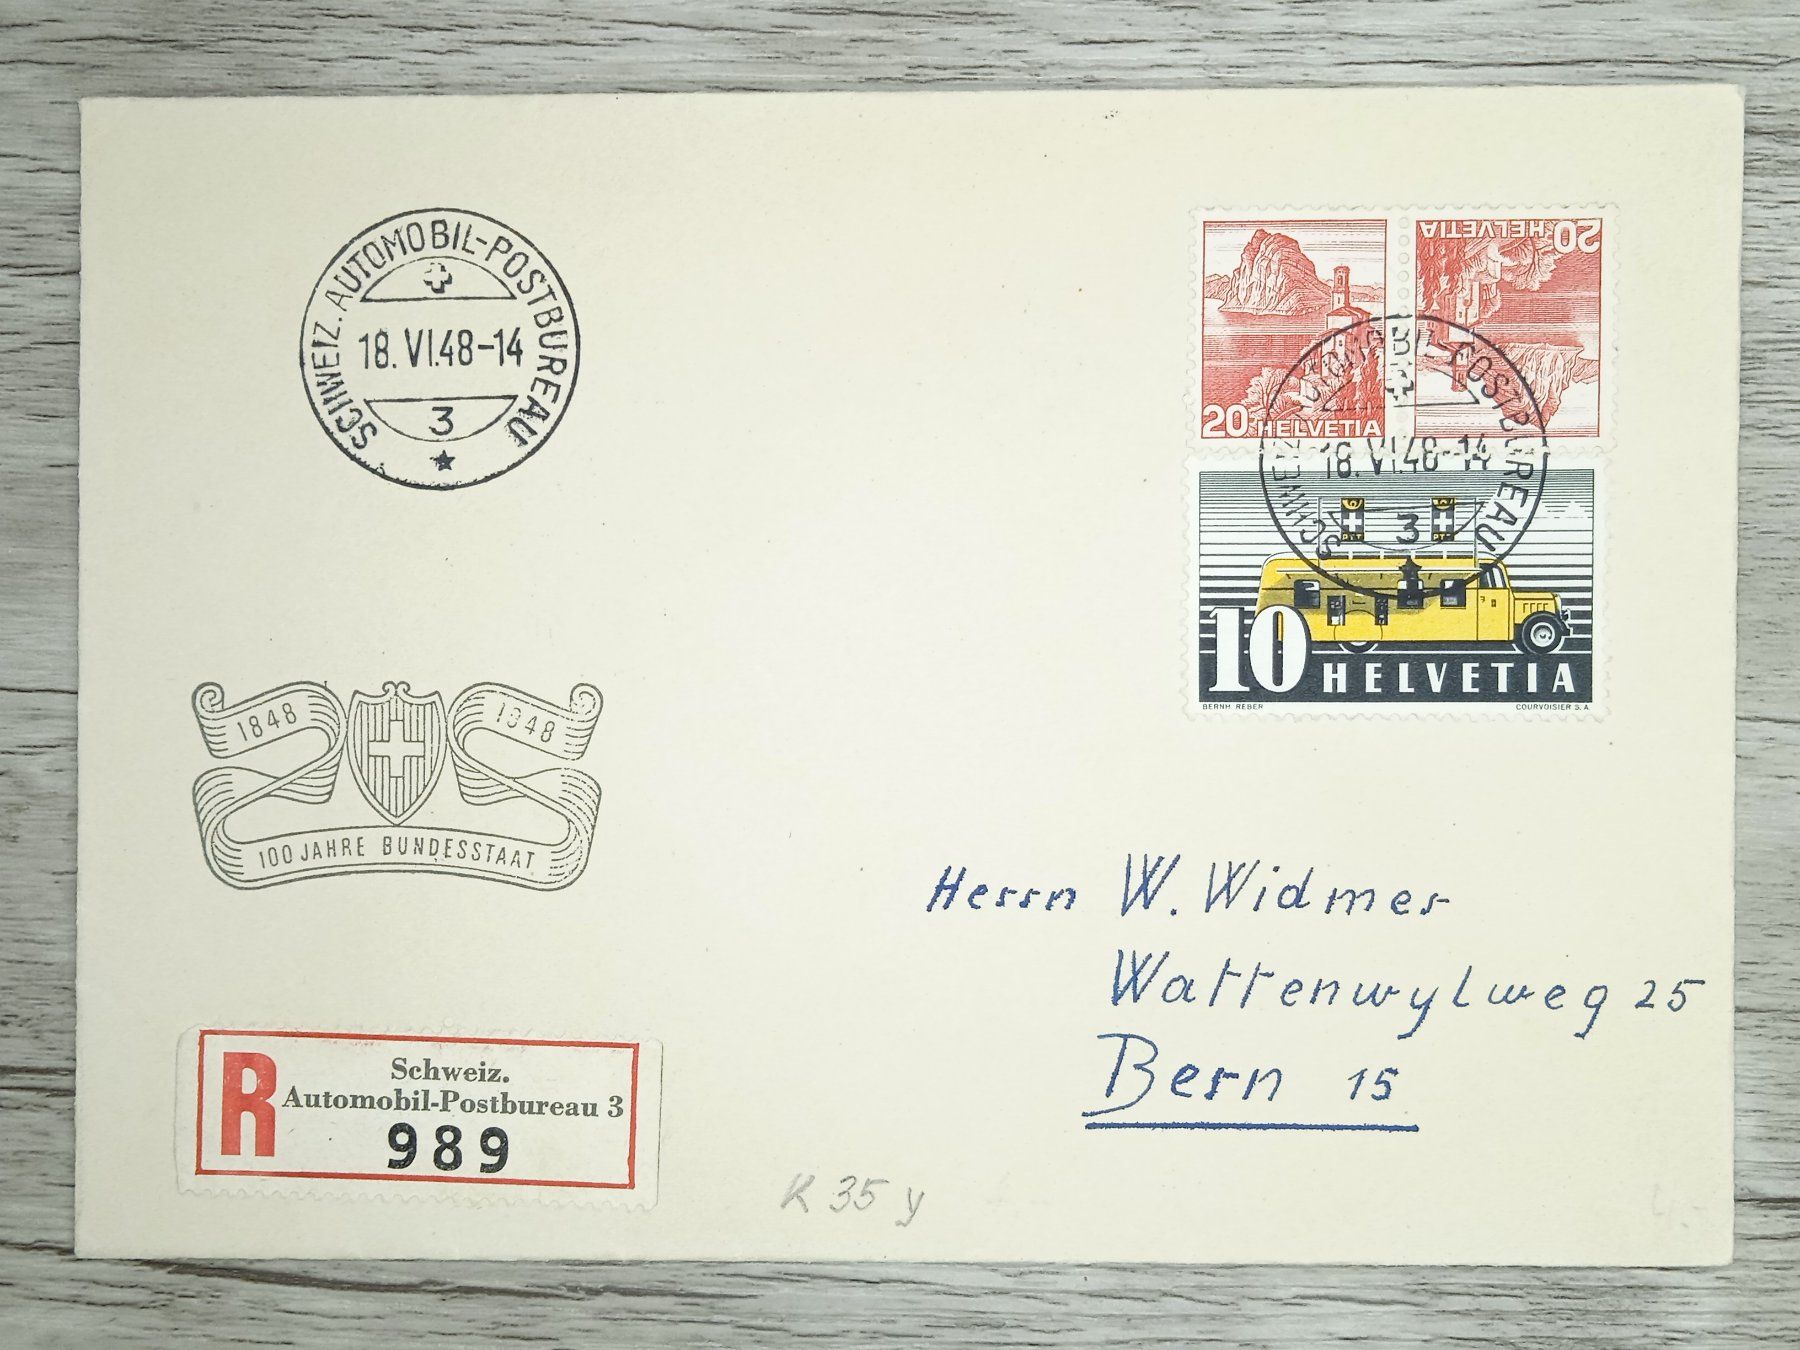 SCHWEIZ. AUTOMOBIL-POSTBUREAU
18. VI.48-14
3
20 HELVETIA
20 HELVETIA
SCHWEIZ. AUTOMOBIL-POSTBUREAU
18. VI.48-14
3
PTT PTT
10 HELVETIA
BERNH REBER COURVOISIER S.A.
1848 1948
100 JAHRE BUNDESSTAAT
Herrn W. Widmer
Wattenwylweg 25
Bern 15
R
Schweiz.
Automobil-Postbureau 3
989
K 35 y